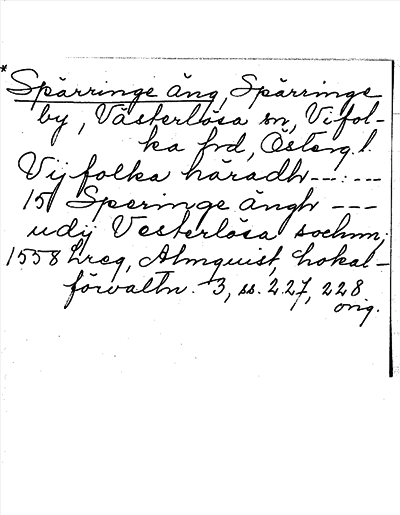 * Spärringe äng, Spärringe
by, Västerlösa sn, Vifol-
ka hrd, Österg. l.
Vij folka häradh --- : ---
15) Speringe ängh ---
udij Vesterlösa sochnn;
1558 Lreg, Almquist, Lokal-
förvaltn. 3, ss. 227, 228
orig.